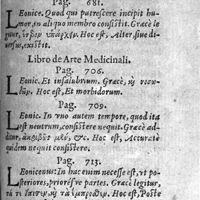 Pag. 681.
Eonic. Quod qui putrescere incipit hu-
mor, in alio quo membro consistit. Græcè le
gitur, Hoc est, Alter, siue di-
uersus, existit.
Libro de Arte Medicinali.
Pag. 706.
Eonic. Et insalubrum. Græcè,
Hoc est, Et morbidorum.
Pag. 709.
Eonic. In vno autem tempore, quod ita
est neutrum, consistere nequit. Græcè ad-
ditur, Hoc est, Accuratè
quidem nequit consistere.
Pag. 713.
Eonicenus: In hac enim necesse est, vt po-
steriores, priorésve partes. Græcè legitur,
Hoc est, Poste